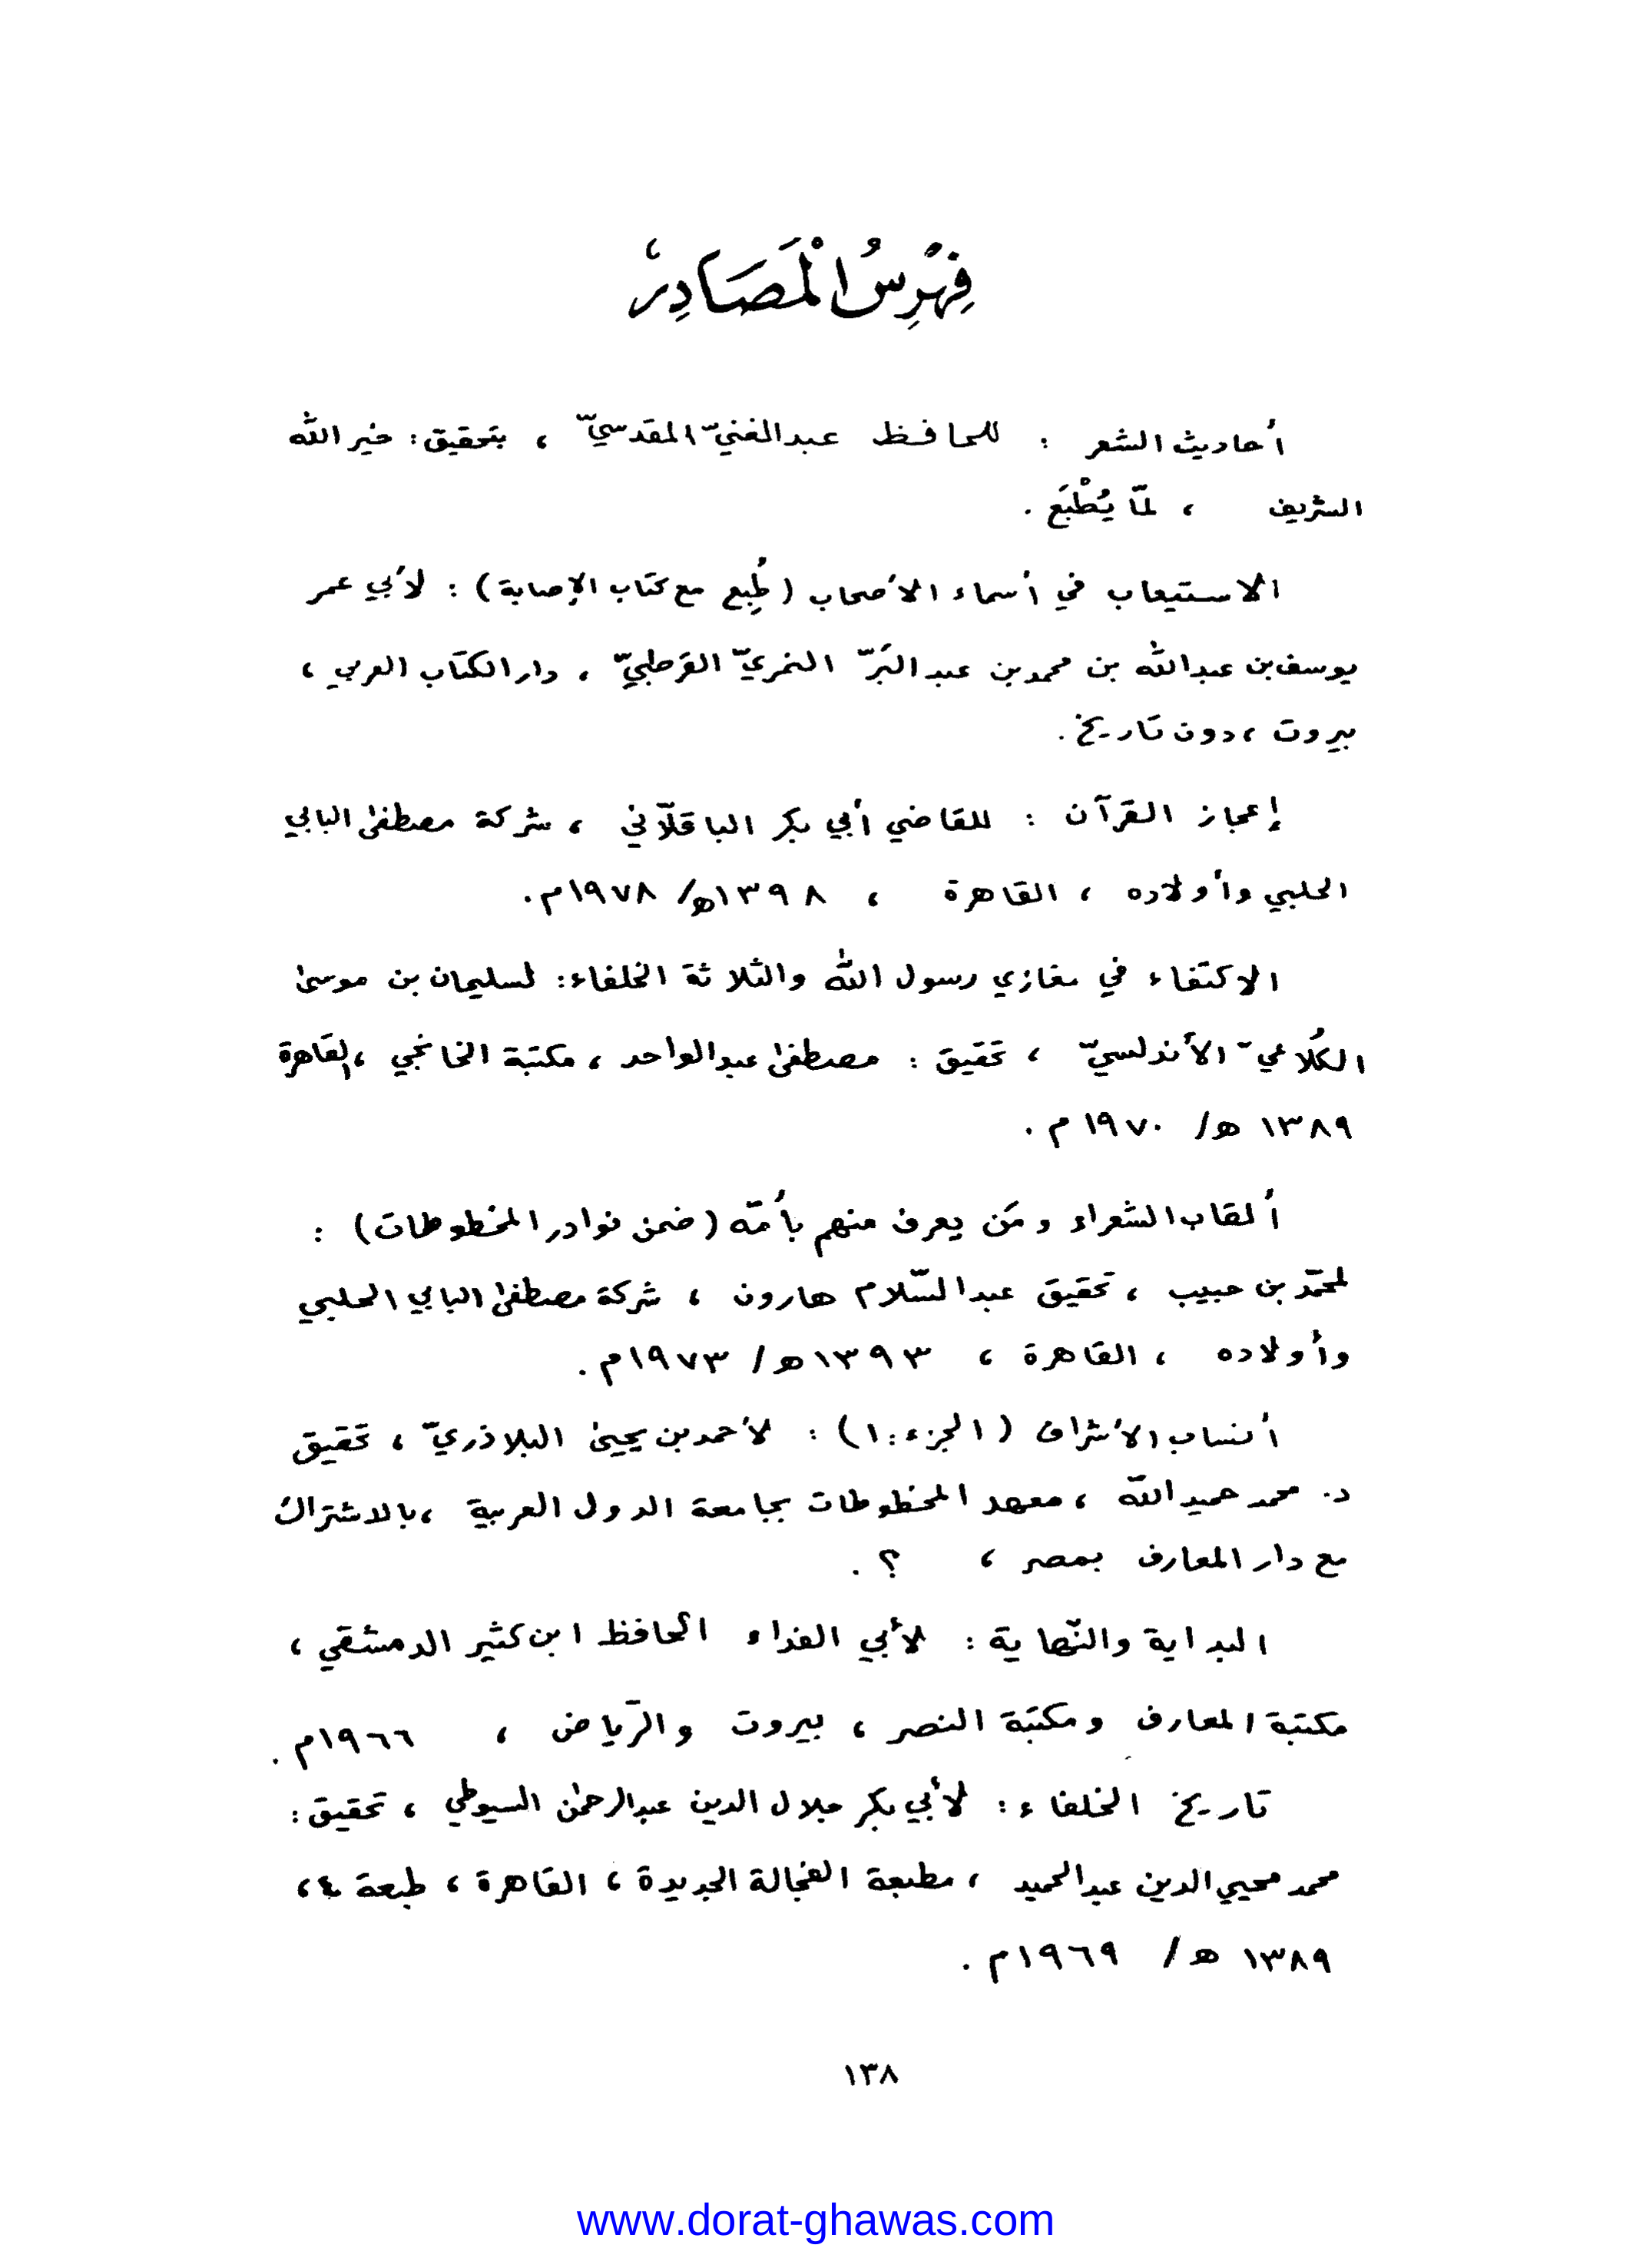 فِهْرِسُ الْمَصَادِرِ
أحاديث الشعر : للحافظ عبدالغنيّ المقدسيّ ، بتحقيق : خير الله
الشريف ، لمّا يُطْبَع .
الاستيعاب في أسماء الأصحاب ( طُبِع مع كتاب الإصابة ) : لأبي عمر
يوسف بن عبدالله بن محمد بن عبد البَرّ النمريّ القرطبيّ ، دار الكتاب العربي ،
بيروت ، دون تاريخ .
إعجاز القرآن : للقاضي أبي بكر الباقلّاني ، شركة مصطفى البابي
الحلبي وأولاده ، القاهرة ، ١٣٩٨ه/ ١٩٧٨م .
الاكتفاء في مغازي رسول الله والثلاثة الخلفاء : لسليمان بن موسىٰ
الكُلاعيّ الأندلسيّ ، تحقيق : مصطفىٰ عبدالواحد ، مكتبة الخانجي ، القاهرة
١٣٨٩ ه/ ١٩٧٠ م .
ألقاب الشعراء ومَن يعرف منهم بأُمّه ( ضمن نوادر المخطوطات ) :
لمحمّد بن حبيب ، تحقيق عبد السّلام هارون ، شركة مصطفىٰ البابي الحلبي
وأولاده ، القاهرة ، ١٣٩٣ه/ ١٩٧٣م .
أنساب الأشراف ( الجزء : ١ ) : لأحمد بن يحيىٰ البلاذريّ ، تحقيق
د. محمد حميد الله ، معهد المخطوطات بجامعة الدول العربية ، بالاشتراك
مع دار المعارف بمصر ، ؟ .
البداية والنّهاية : لأبي الفداء الحافظ ابن كثير الدمشقي ،
مكتبة المعارف ومكتبة النصر ، بيروت والرّياض ، ١٩٦٦م .
تاريخ الخلفاء : لأبي بكر جلال الدين عبدالرحمٰن السيوطي ، تحقيق :
محمد محيي الدين عبدالحميد ، مطبعة الفجالة الجديدة ، القاهرة ، طبعة ٤ ،
١٣٨٩ ه/ ١٩٦٩م .
١٣٨
www.dorat-ghawas.com